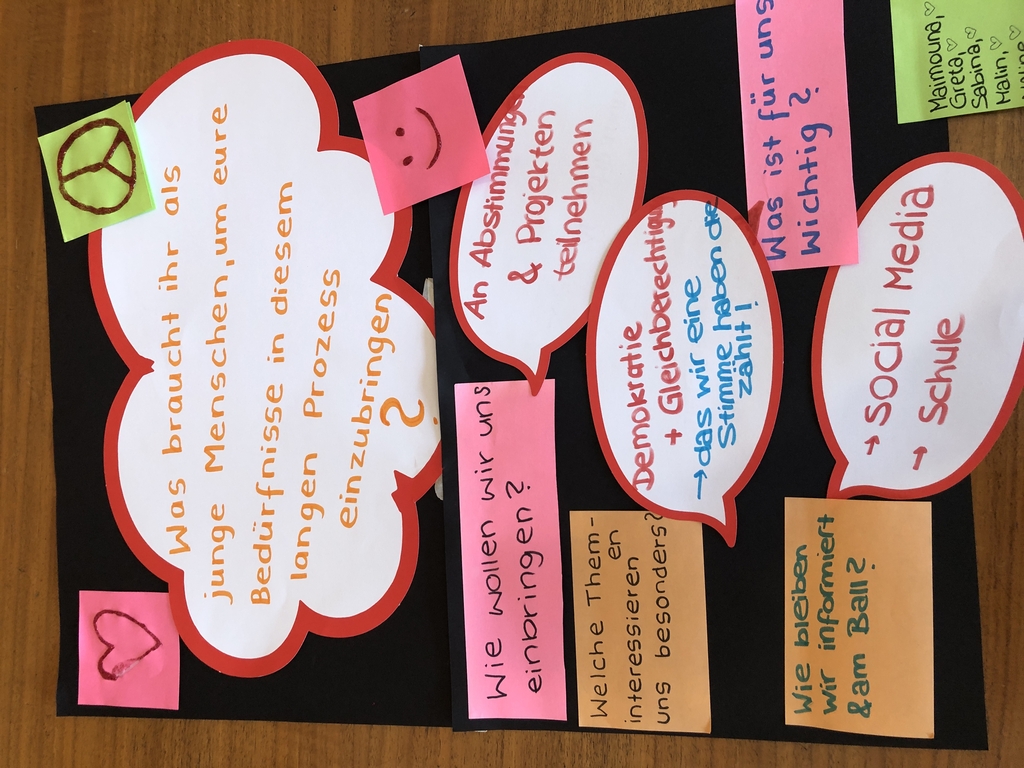 Was braucht ihr als
junge Menschen, um eure
Bedürfnisse in diesem
langen Prozess
einzubringen
?
Wie wollen wir uns
einbringen?
An Abstimmungen
& Projekten
teilnehmen
Welche Them-
en
interessieren
uns besonders?
Demokratie
+ Gleichberechtigung
→ das wir eine
Stimme haben die
zählt!
Was ist für uns
Wichtig?
Wie bleiben
wir informiert
& am Ball?
→ Social Media
→ Schule
Maimouna, ♡
Greta, ♡
Sabina, ♡
Malin, ♡